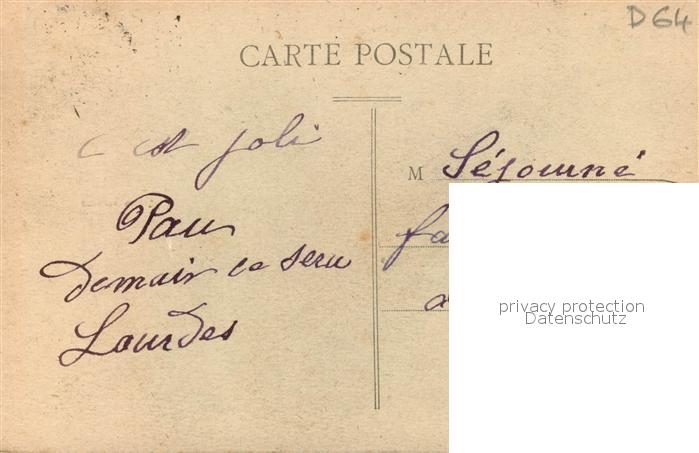 D64
CARTE POSTALE
c'est joli
Pau
demain ce sera
Lourdes
M Séjourné
fa
a
privacy protection
Datenschutz